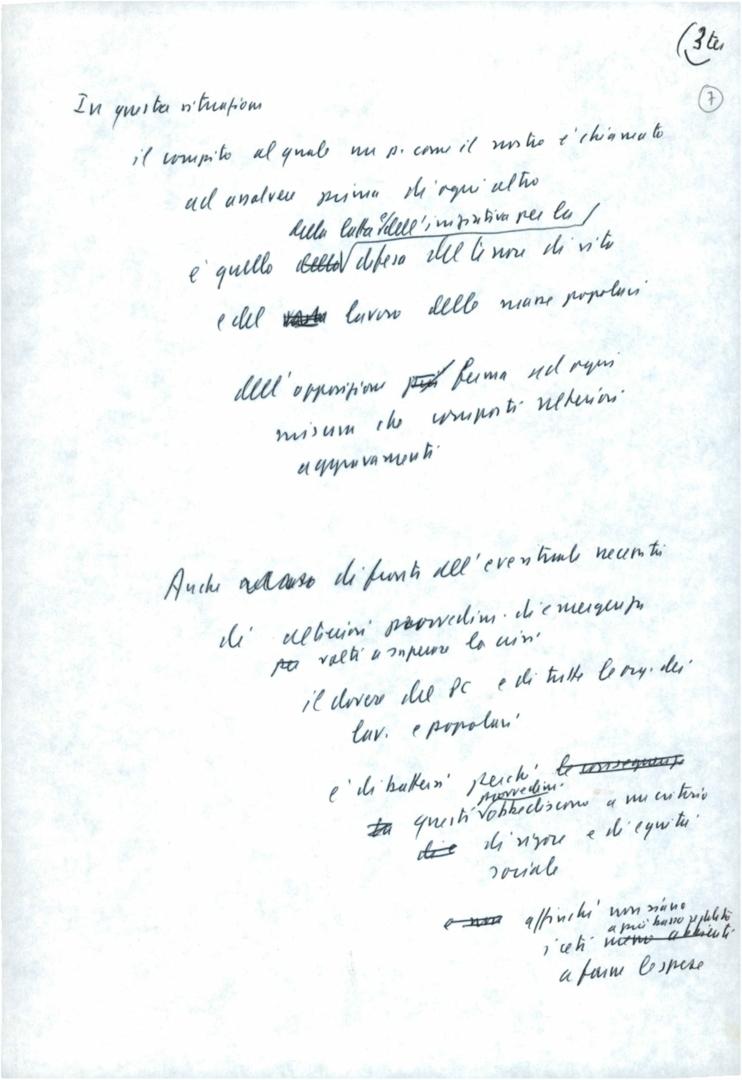 (3 ter
7
In questa situazione
il compito al quale un p. come il nostro è chiamato
ad assolvere prima di ogni altro
della lotta e dell'iniziativa per la
è quello della difesa del tenore di vita
e del lavoro delle masse popolari
dell'opposizione più ferma ad ogni
misura che comporti ulteriori
aggravamenti
Anche di fronte all'eventuale necessità
di ulteriori provvedim. di emergenza
per volti a superare la crisi
il dovere del PC e di tutte le org. dei
lav. e popolari
è di battersi perché le conseguenze
provvedim.
questi obbediscano a un criterio
di e di rigore e di equità
sociale
e non affinché non siano
a più basso reddito
i ceti meno abbienti
a farne le spese